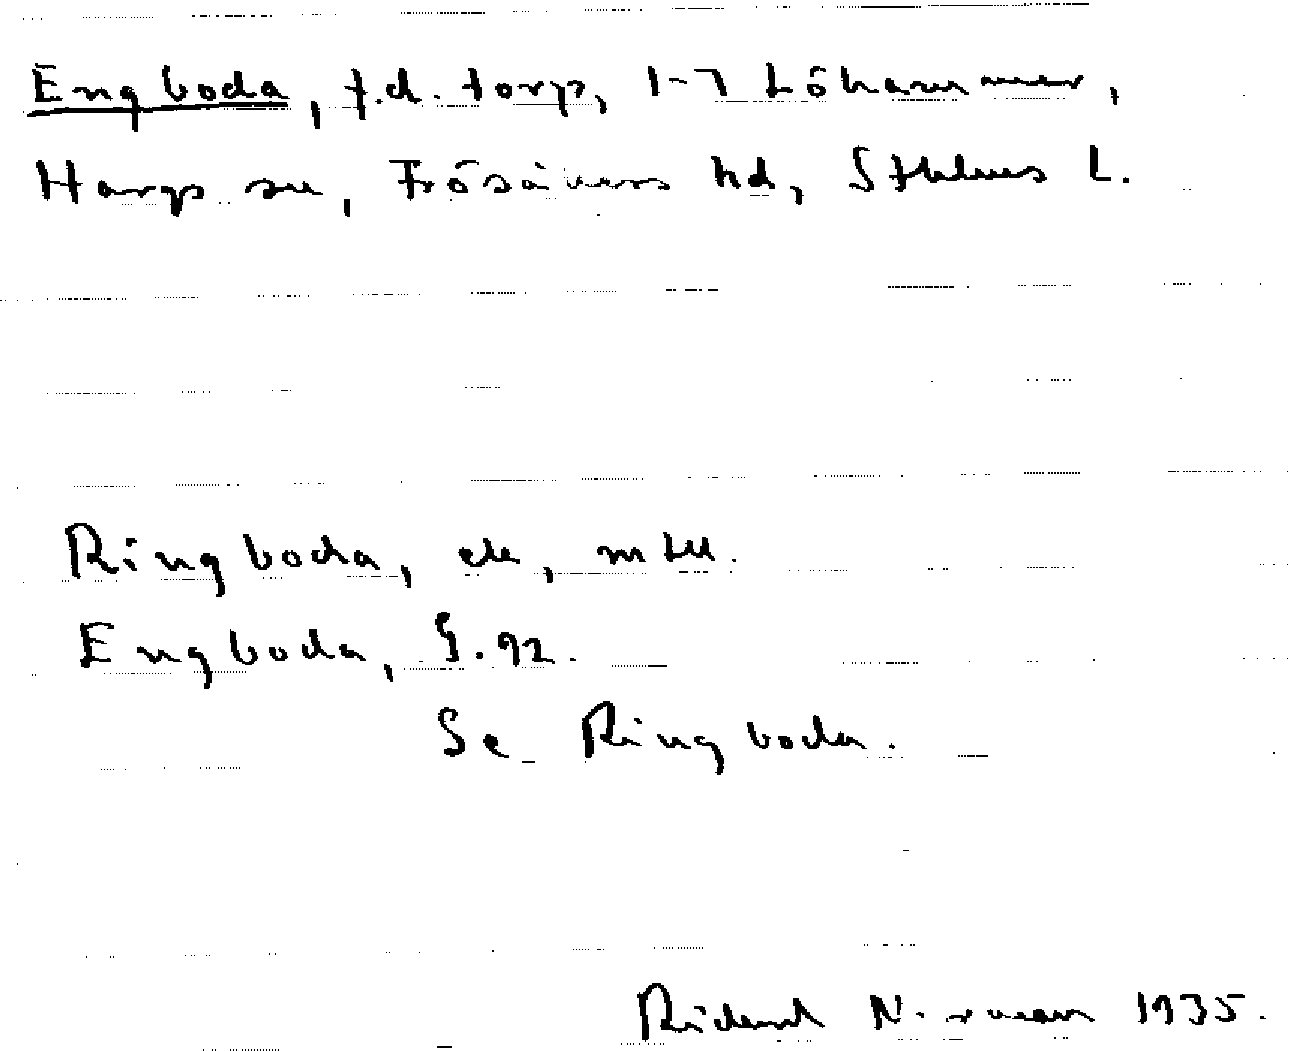 Engboda, f.d. torp, 1-7 Löhammar,
Hargs sn, Frösåkers hd, Sthlms l.
Ringboda, ek, mtbl.
Engboda, S.92.
Se Ringboda.
Rickard N. 1935.